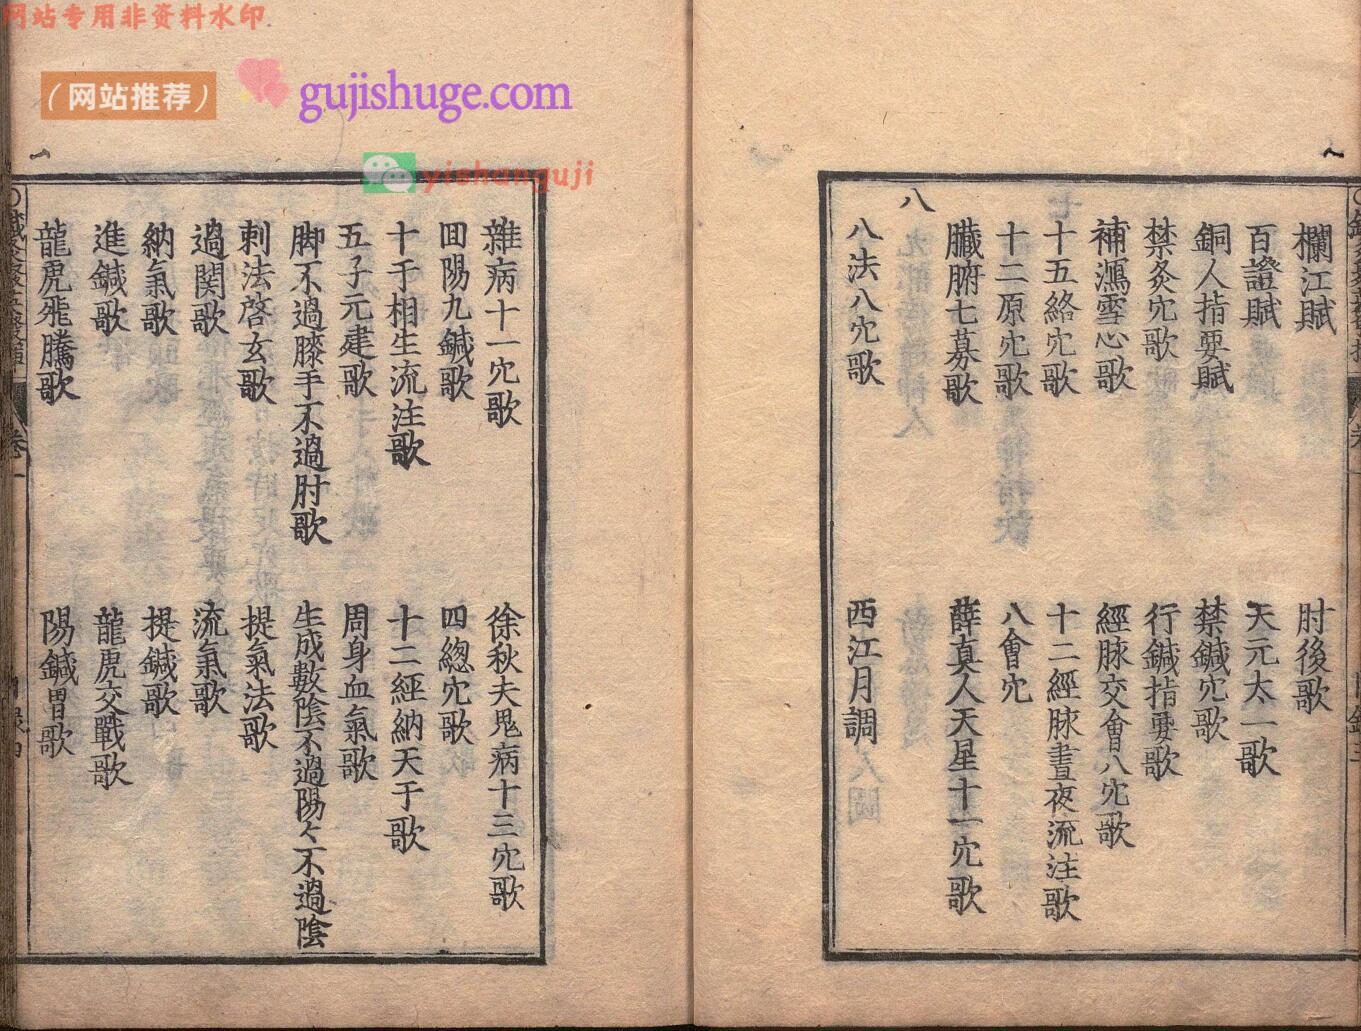 网站专用非资料水印
（网站推荐）
gujishuge.com
yishanguji
欄江賦 肘後歌
百證賦 天元太一歌
銅人指要賦 禁鍼穴歌
禁灸穴歌 行鍼指要歌
補瀉雪心歌 經脉交會八穴歌
十五絡穴歌 十二經脉晝夜流注歌
十二原穴歌 八會穴
臟腑七募歌 薛真人天星十一穴歌
八
八法八穴歌 西江月調
雜病十一穴歌 徐秋夫鬼病十三穴歌
回陽九鍼歌 四總穴歌
十干相生流注歌 十二經納天干歌
五子元建歌 周身血氣歌
脚不過膝手不過肘歌 生成數陰不過陽々不過陰
刺法啓玄歌 提氣法歌
過関歌 流氣歌
納氣歌 提鍼歌
進鍼歌 龍虎交戰歌
龍虎飛騰歌 陽鍼冑歌
卷一